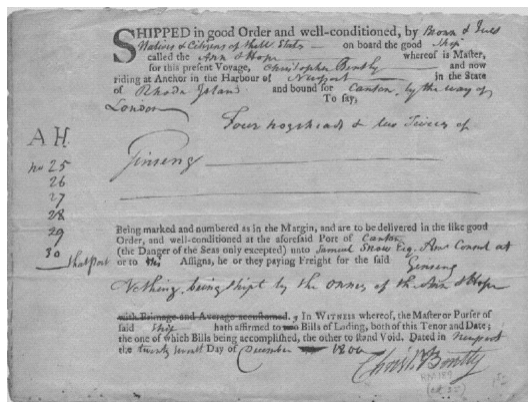 SHIPPED in good Order and well-conditioned, by Brown & Ives
Natives & Citizens of the U States on board the good Ship
called the Ann & Hope whereof is Master,
for this present Voyage, Christopher Bently and now
riding at Anchor in the Harbour of Newport in the State
of Rhode Island and bound for Canton, by the way of
London To say,
Four hogsheads & two Tierces of
Ginseng
A H.
no 25
26
27
28
29
30
Being marked and numbered as in the Margin, and are to be delivered in the like good
Order, and well-conditioned at the aforesaid Port of Canton
(the Danger of the Seas only excepted) unto Samuel Snow Esq. Am Consul at
that Port or to his Assigns, he or they paying Freight for the said Ginseng
Nothing, being shipt by the owners of the Ann & Hope
with Primage and Average accustomed. In WITNESS whereof, the Master or Purser of
said Ship hath affirmed to two Bills of Lading, both of this Tenor and Date;
the one of which Bills being accomplished, the other to stand Void. Dated in Newport
the twenty Day of December 1800
Christ. Bently